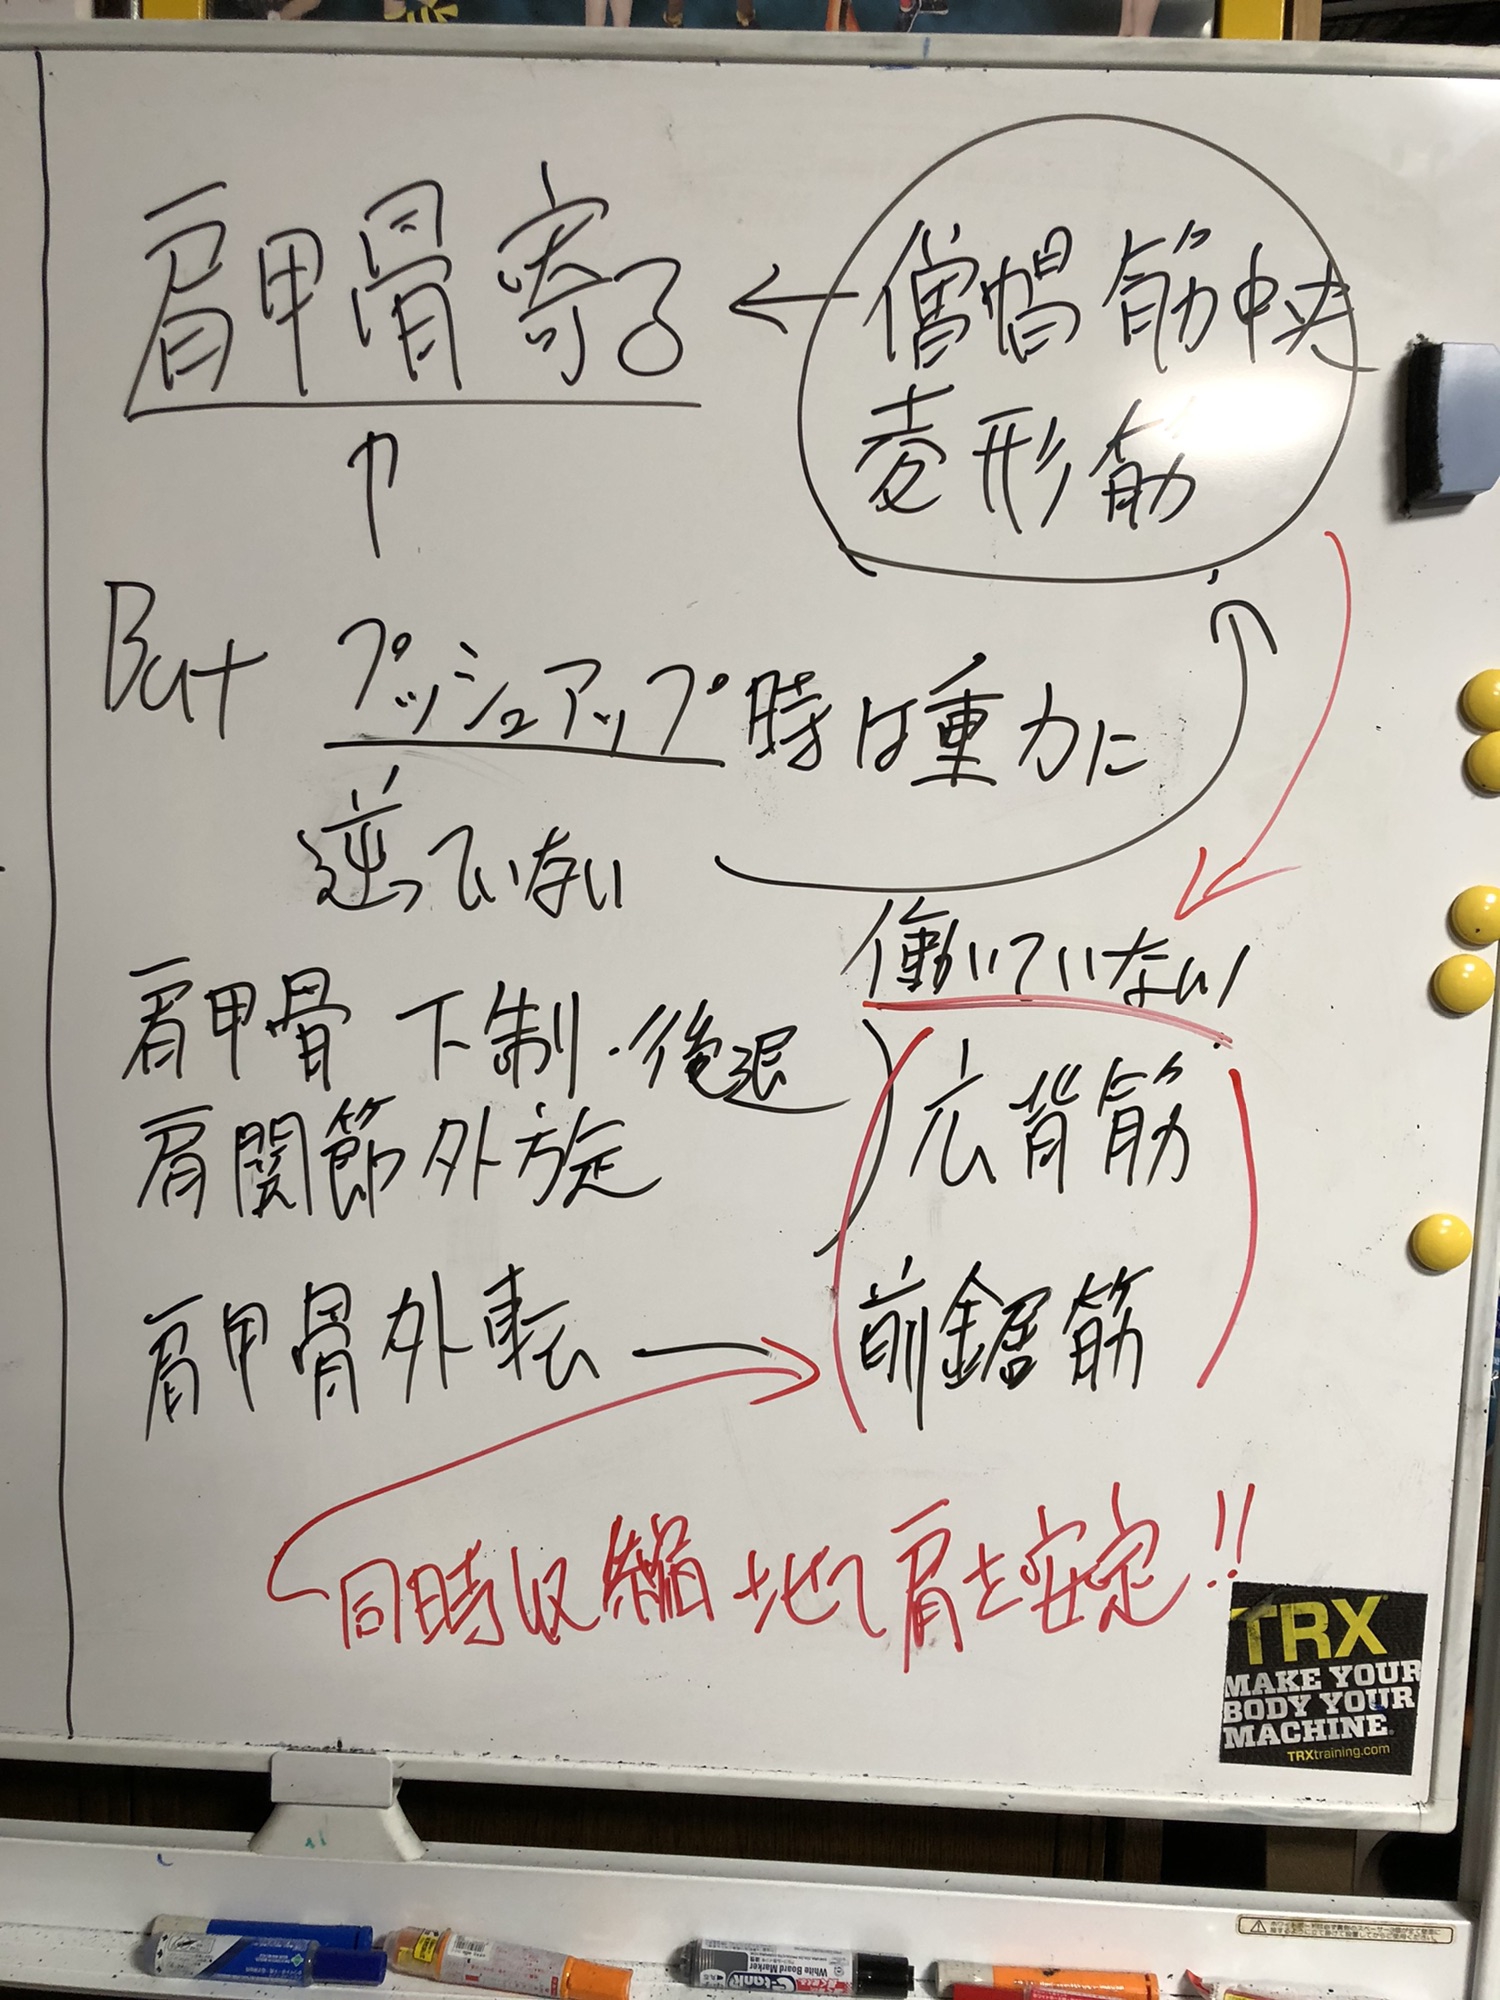 肩甲骨寄る
僧帽筋中央
菱形筋
But プッシュアップ時は重力に
逆っていない
働いていない
肩甲骨 下制・後退
肩関節外旋
広背筋
肩甲骨外転
前鋸筋
同時収縮させて肩を安定!!
TRX
MAKE YOUR
BODY YOUR
MACHINE.
TRXtraining.com
White Board Marker